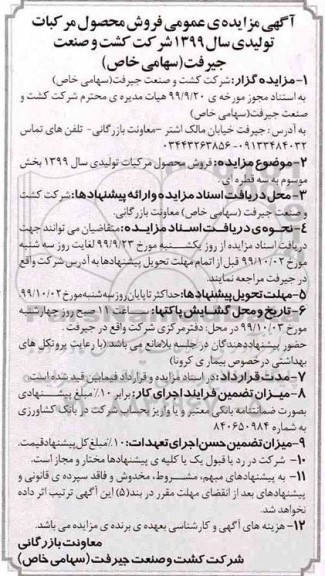 آگهی مزایده‌ی عمومی فروش محصول مرکبات
تولیدی سال ۱۳۹۹ شرکت کشت و صنعت
جیرفت (سهامی خاص)
۱- مزایده گزار: شرکت کشت و صنعت جیرفت (سهامی خاص)
به استناد مجوز مورخه ی ۹۹/۹/۲۰ هیات مدیره ی محترم شرکت کشت و
صنعت جیرفت (سهامی خاص)
به آدرس: جیرفت خیابان مالک اشتر - معاونت بازرگانی - تلفن های تماس
۰۹۱۳۳۴۸۴۰۳۲ - ۰۳۴۴۳۲۶۳۸۵۶
۲- موضوع مزایده: فروش محصول مرکبات تولیدی سال ۱۳۹۹ بخش
موسوم به سه قطره ای.
۳- محل دریافت اسناد مزایده و ارائه پیشنهادها: شرکت کشت
و صنعت جیرفت (سهامی خاص) معاونت بازرگانی.
۴- نحوه ی دریافت اسناد مزایده: متقاضیان می توانند جهت
دریافت اسناد مزایده از روز یکشنبه مورخ ۹۹/۹/۲۳ لغایت روز سه شنبه
مورخ ۹۹/۱۰/۰۲ قبل از اتمام مهلت تحویل پیشنهادها به آدرس شرکت واقع
در جیرفت مراجعه نمایند.
۵- مهلت تحویل پیشنهادها: حداکثر تا پایان روز سه شنبه مورخ ۹۹/۱۰/۰۲
۶- تاریخ و محل گشایش پاکتها: ساعت ۱۰ صبح روز چهارشنبه
مورخ ۹۹/۱۰/۰۳ در محل: دفتر مرکزی شرکت واقع در جیرفت.
حضور پیشنهاددهندگان در جلسه بلامانع می باشد (با رعایت پروتکل های
بهداشتی در خصوص بیماری کرونا)
۷- مدت قرارداد: در اسناد مزایده و قرارداد فیمابین قید شده است.
۸- میزان تضمین فرایند اجرای کار: برابر ۱۰٪ مبلغ پیشنهادی
بصورت ضمانتنامه بانکی معتبر و یا واریز بحساب شرکت در بانک کشاورزی
به شماره ۸۴۰۶۵۰۹۸۴
۹- میزان تضمین حسن اجرای تعهدات: ۱۰٪ مبلغ کل پیشنهاد قیمت.
۱۰- شرکت در رد یا قبول یک یا کلیه ی پیشنهادها مختار و مجاز است.
۱۱- به پیشنهادهای مبهم، مشروط، مخدوش و فاقد سپرده ی قانونی و
پیشنهادهای بعد از انقضای مهلت مقرر در بند (۵) این آگهی ترتیب اثر داده
نخواهد شد.
۱۲- هزینه های آگهی و کارشناسی بعهده ی برنده ی مزایده می باشد.
معاونت بازرگانی
شرکت کشت و صنعت جیرفت (سهامی خاص)